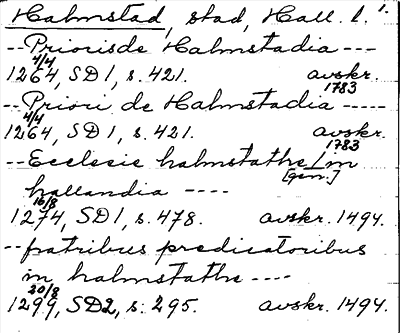 Halmstad, stad, Hall. l. 1.
-- Priorisde Halmstadia ---
1264, 4/4 SD1, s. 421. avskr. 1783
-- Priori de Halmstadia -----
1264, 4/4 SD1, s. 421. avskr. 1783
-- Ecclesie halmstathe/in [gen.]
hallandia ----
1274, 16/8 SD1, s. 478. avskr. 1494.
-- fratribus predicatoribus
in halmstathe ----
1299, 20/8 SD2, s. 295. avskr. 1494.